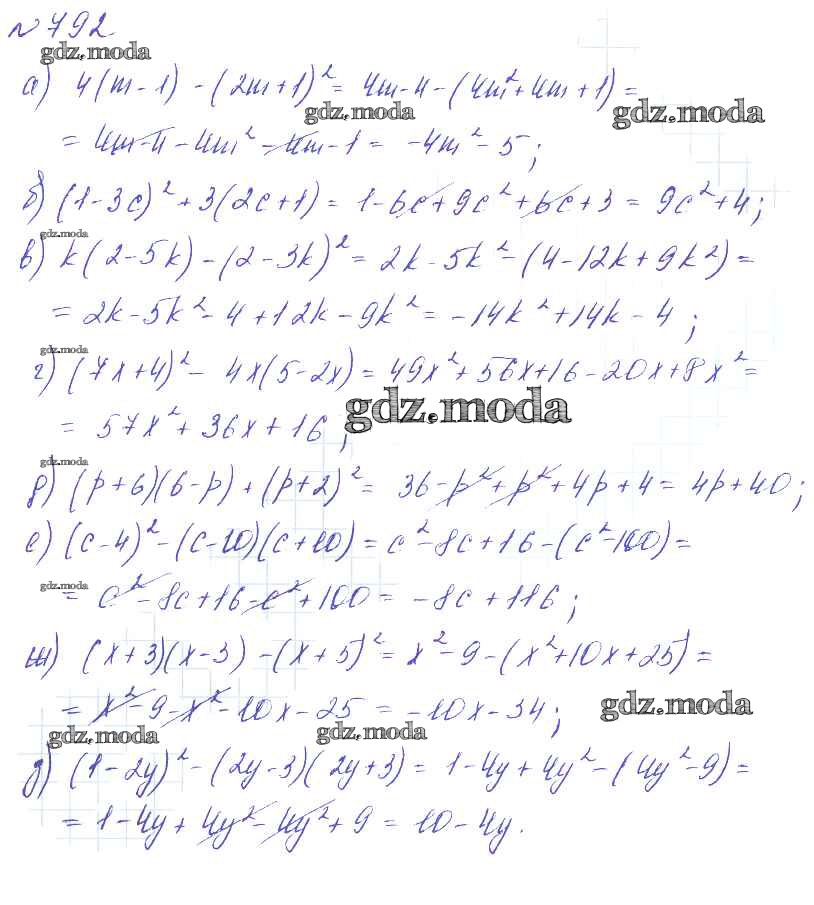 № 792
gdz.moda
а) 4(m-1) - (2m+1)² = 4m-4-(4m²+4m+1) =
gdz.moda gdz.moda
= 4m-4-4m²-4m-1 = -4m²-5;
б) (1-3c)²+3(2c+1) = 1-6c+9c²+6c+3 = 9c²+4;
gdz.moda
в) k(2-5k)-(2-3k)² = 2k-5k²-(4-12k+9k²) =
= 2k-5k²-4+12k-9k² = -14k²+14k-4;
gdz.moda
г) (7x+4)²- 4x(5-2x) = 49x²+56x+16-20x+8x² =
gdz.moda
= 57x²+36x+16;
gdz.moda
д) (p+6)(6-p)+(p+2)² = 36-p²+p²+4p+4 = 4p+40;
е) (c-4)²-(c-10)(c+10) = c²-8c+16-(c²-100) =
gdz.moda
= c²-8c+16-c²+100 = -8c+116;
ж) (x+3)(x-3)-(x+5)² = x²-9-(x²+10x+25) =
= x²-9-x²-10x-25 = -10x-34;
gdz.moda
gdz.moda gdz.moda
д) (1-2y)²-(2y-3)(2y+3) = 1-4y+4y²-(4y²-9) =
= 1-4y+4y²-4y²+9 = 10-4y.